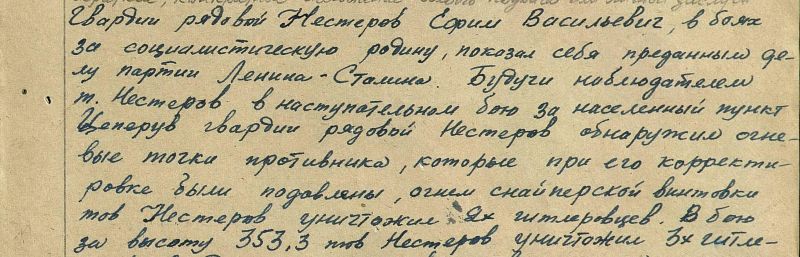 Гвардии рядовой Нестеров Ефим Васильевич, в боях
за социалистическую родину, показал себя преданным де-
лу партии Ленина-Сталина. Будучи наблюдателем
т. Нестеров в наступательном бою за населенный пункт
Цеперув гвардии рядовой Нестеров обнаружил огне-
вые точки противника, которые при его корректи-
ровке были подавлены, огнем снайперской винтовки
тов Нестеров уничтожил 2х гитлеровцев. В бою
за высоту 353,3 тов Нестеров уничтожил 3х гитле-